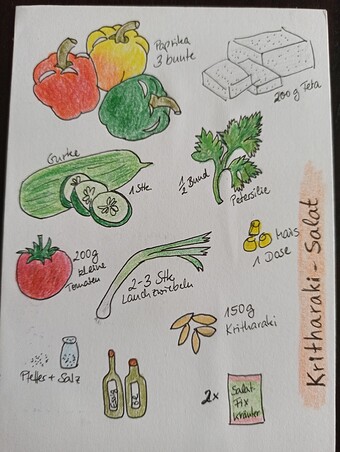 Paprika
3 bunte
200 g Feta
Gurke
1 Stk
1/2 Bund
Petersilie
200g
kleine
Tomaten
2-3 Stk
Lauchzwiebeln
Mais
1 Dose
150g
Kritharaki
Pfeffer + Salz
2x
Salat
Fix
Kräuter
Kritharaki - Salat